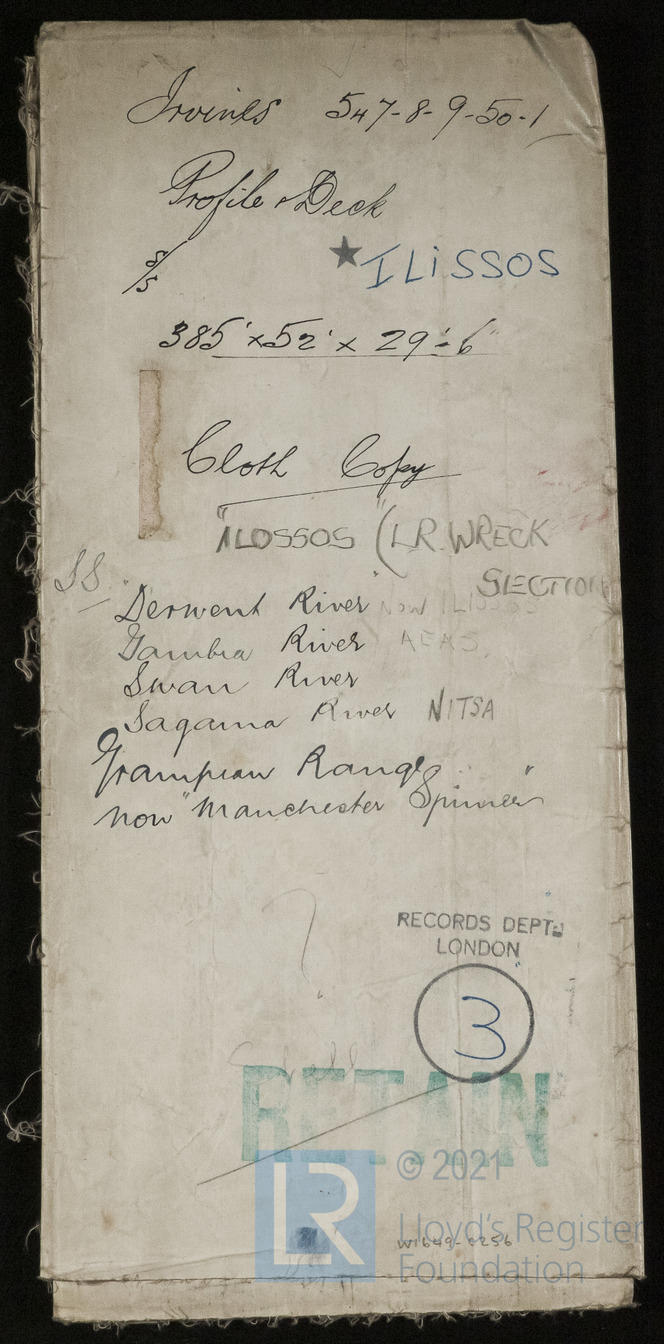 Irvines 547-8-9-50-1
Profile & Deck
S/S ★ ILiSSOS
385' x 52' x 29'-6"
Cloth Copy
"ILOSSOS" (LR. WRECK
SECTION
SS "Derwent River" NOW ILISSOS
Gambia River AEAS.
Swan River
Sagama River NITSA
Grampian Range
now "Manchester Spinner"
RECORDS DEPT.
LONDON
3
RETAIN
LR © 2021
Lloyd's Register
Foundation
W1649-0256